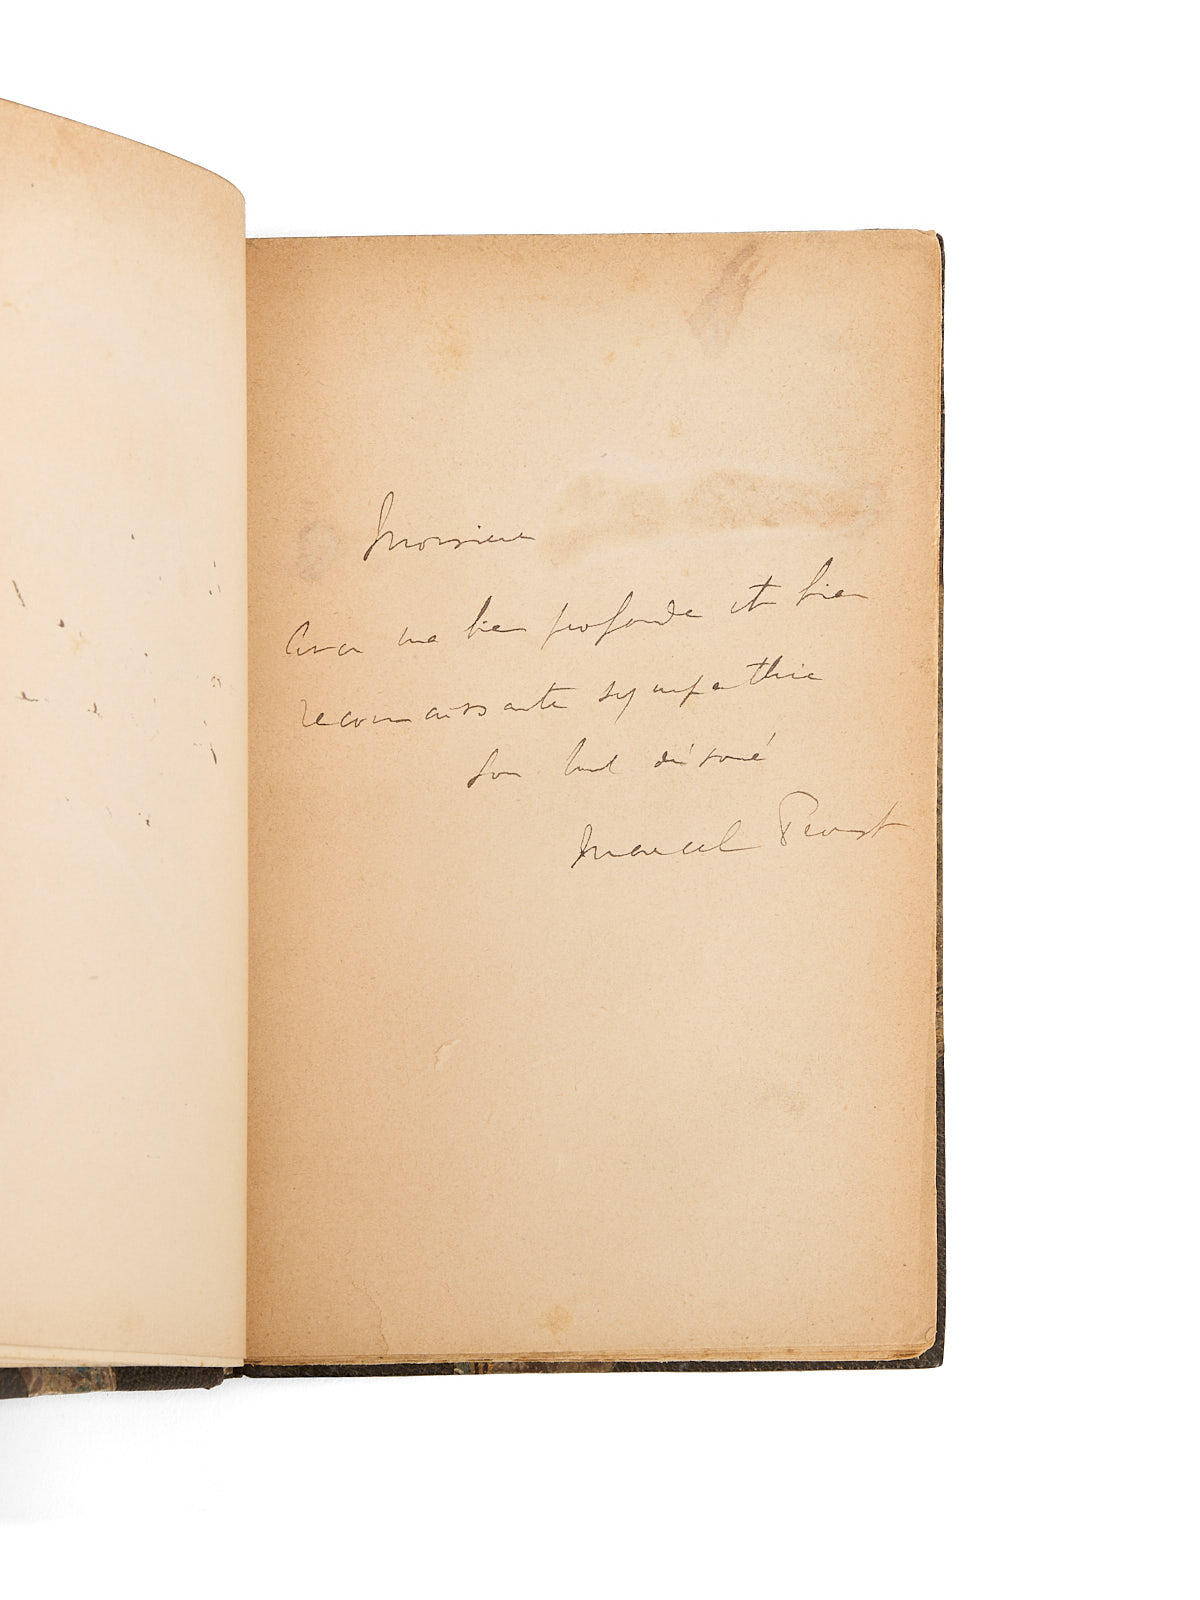 Monsieur
Avec ma bien profonde et bien
reconnaissante sympathie
Son tout dévoué
Marcel Proust